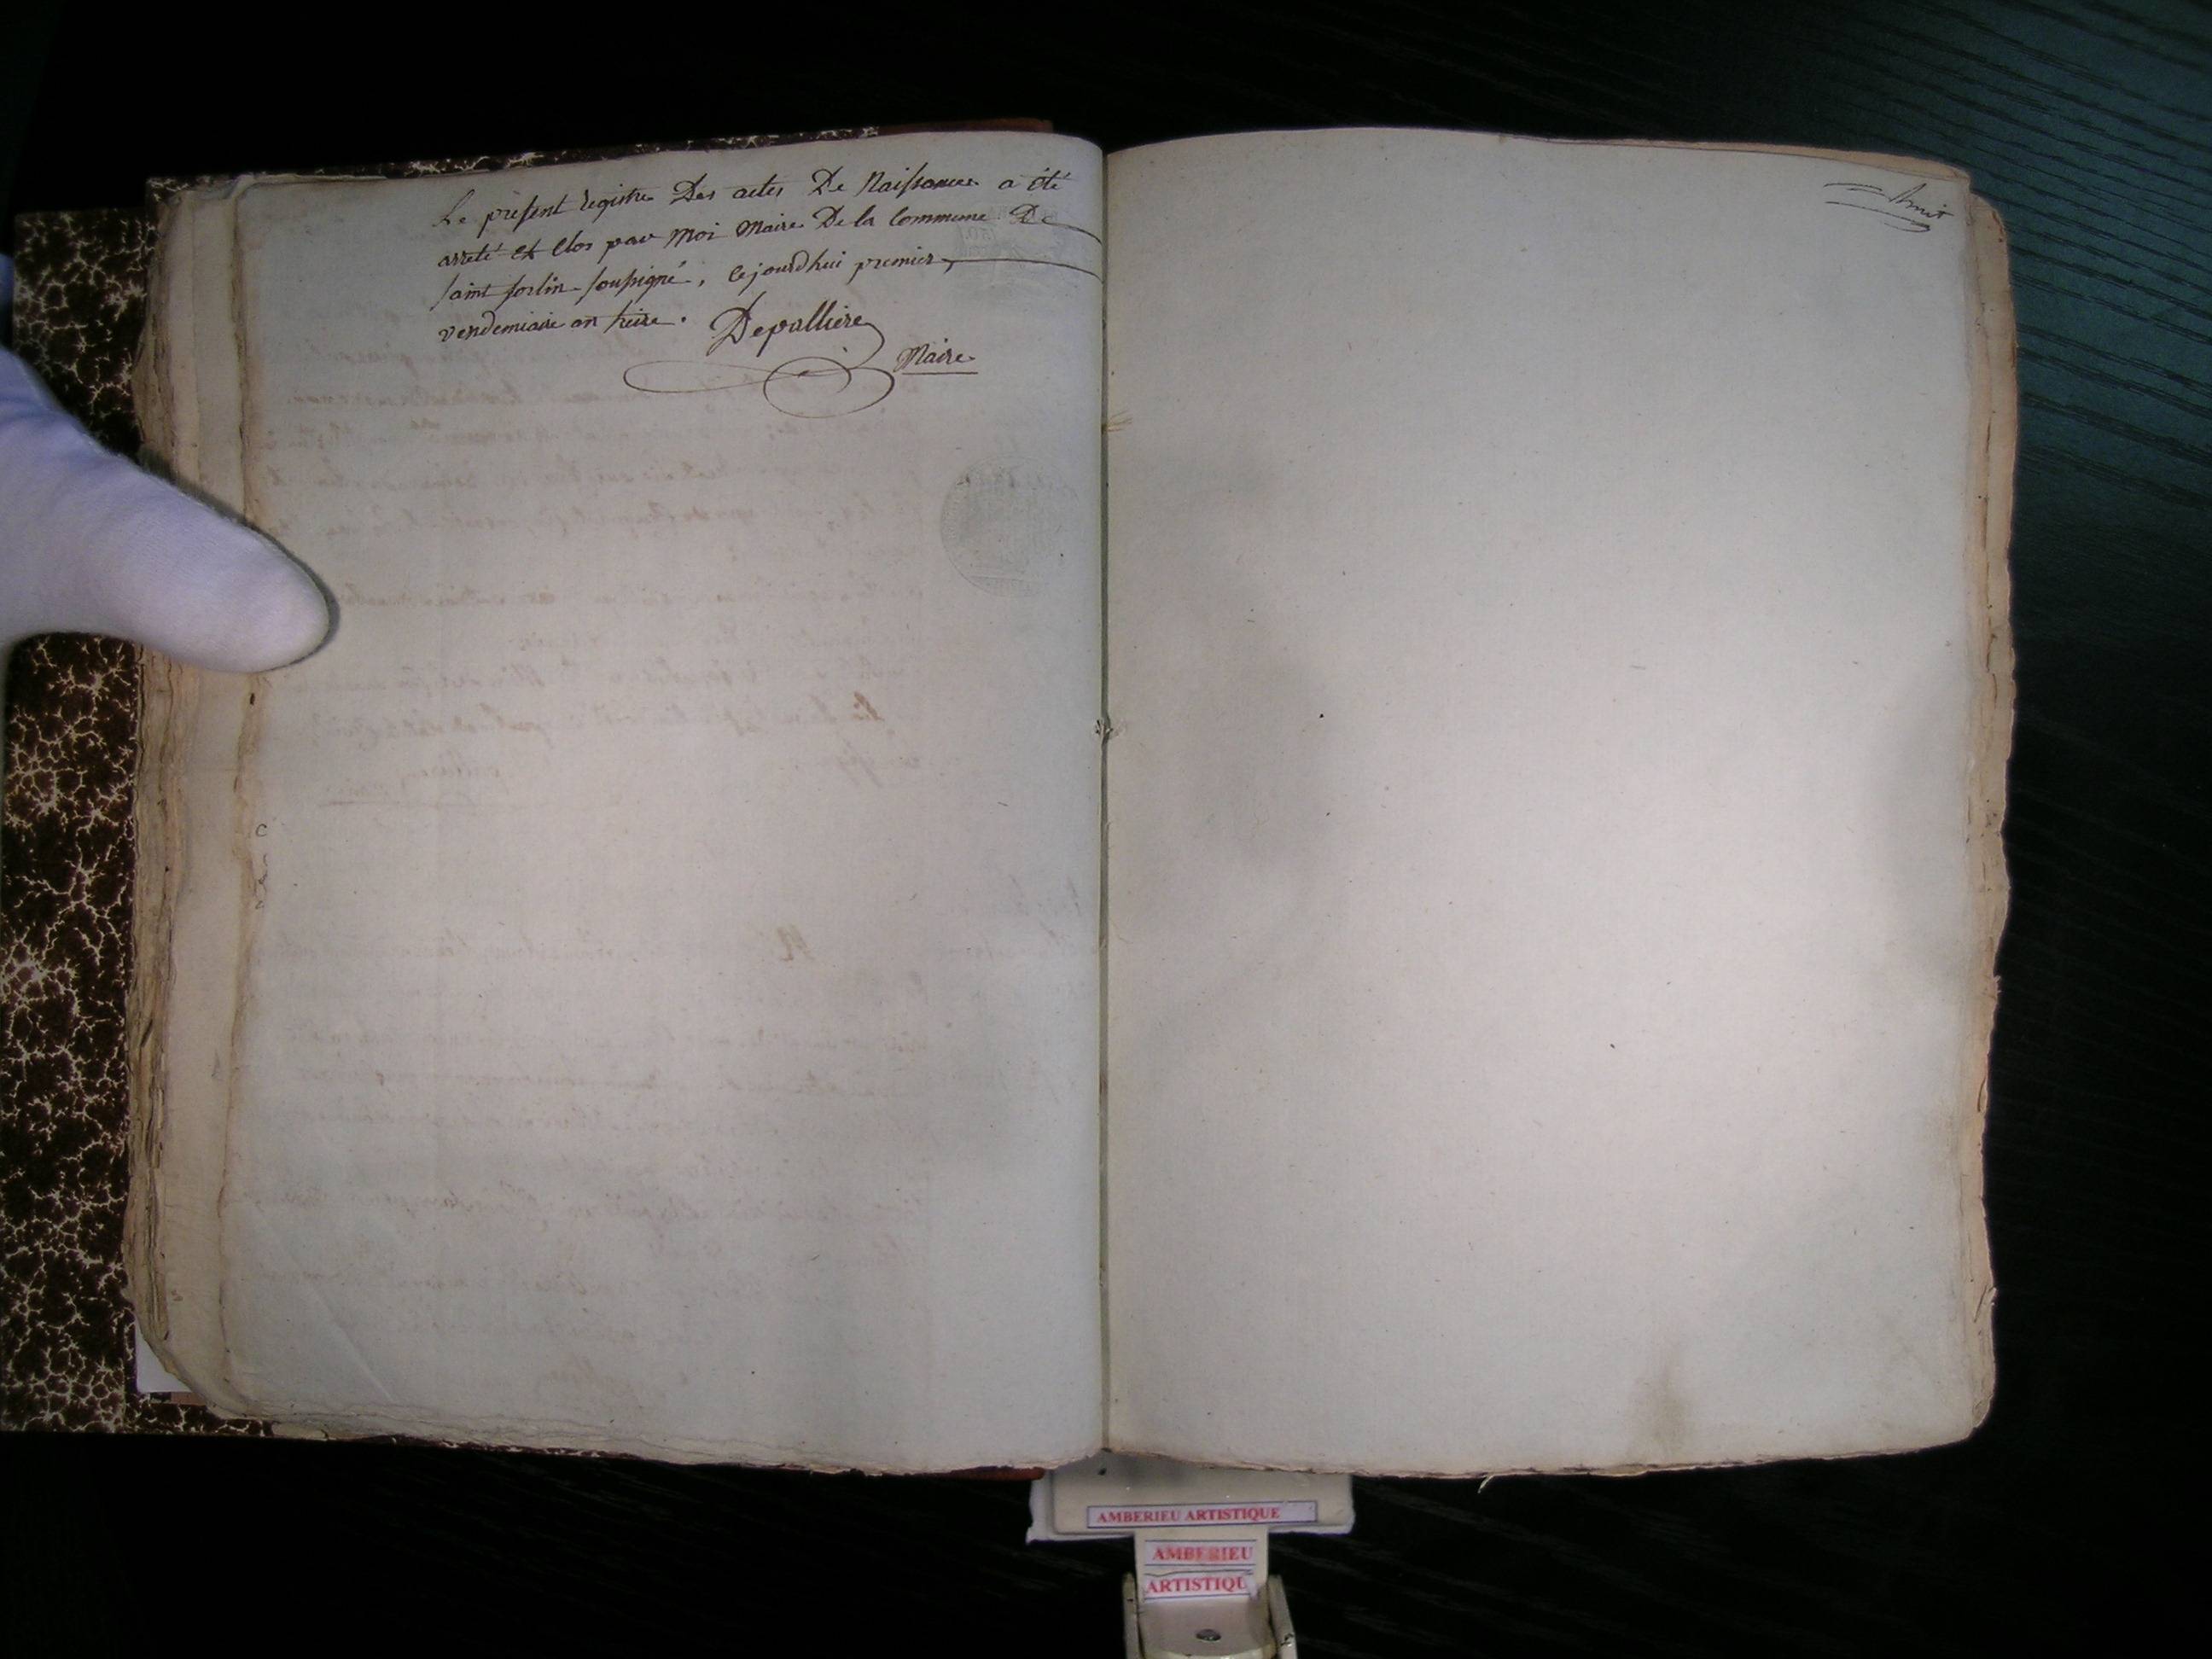 Le présent registre Des actes De Naissances a été
arreté et Clos par Moi Maire De la Commune De
saint sorlin soussigné, Cejourdhui premier
vendemiaire an treize. Depalliere
Maire
huit
AMBERIEU ARTISTIQUE
AMBERIEU
ARTISTIQU